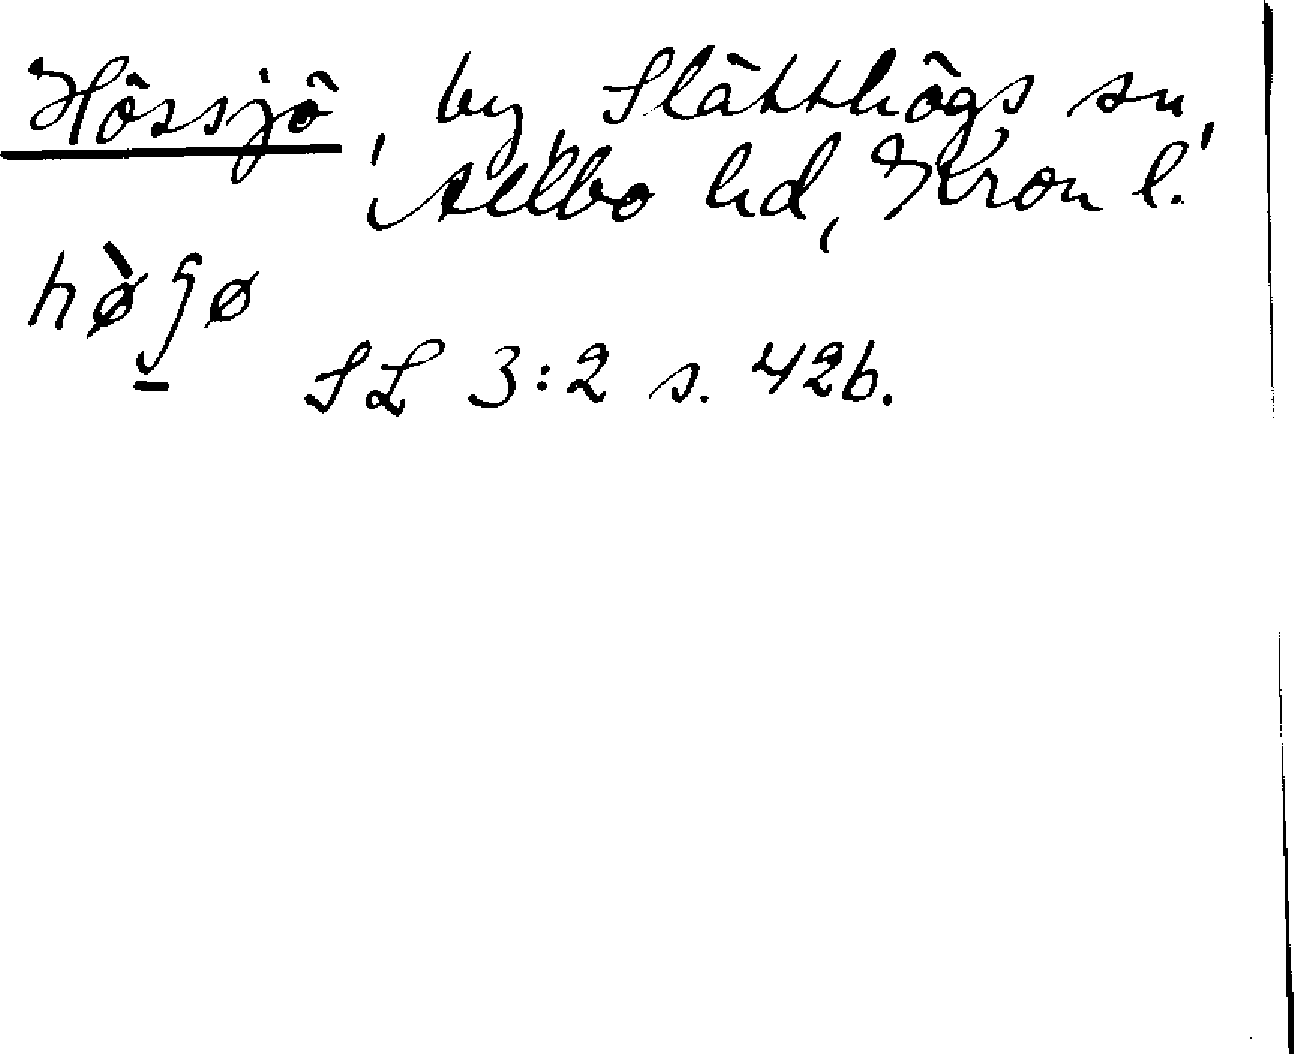 Hössjö, by, Slätthögs sn,
Allbo hd, Kron l.
hø̀ʃø
SL 3:2 s. 426.